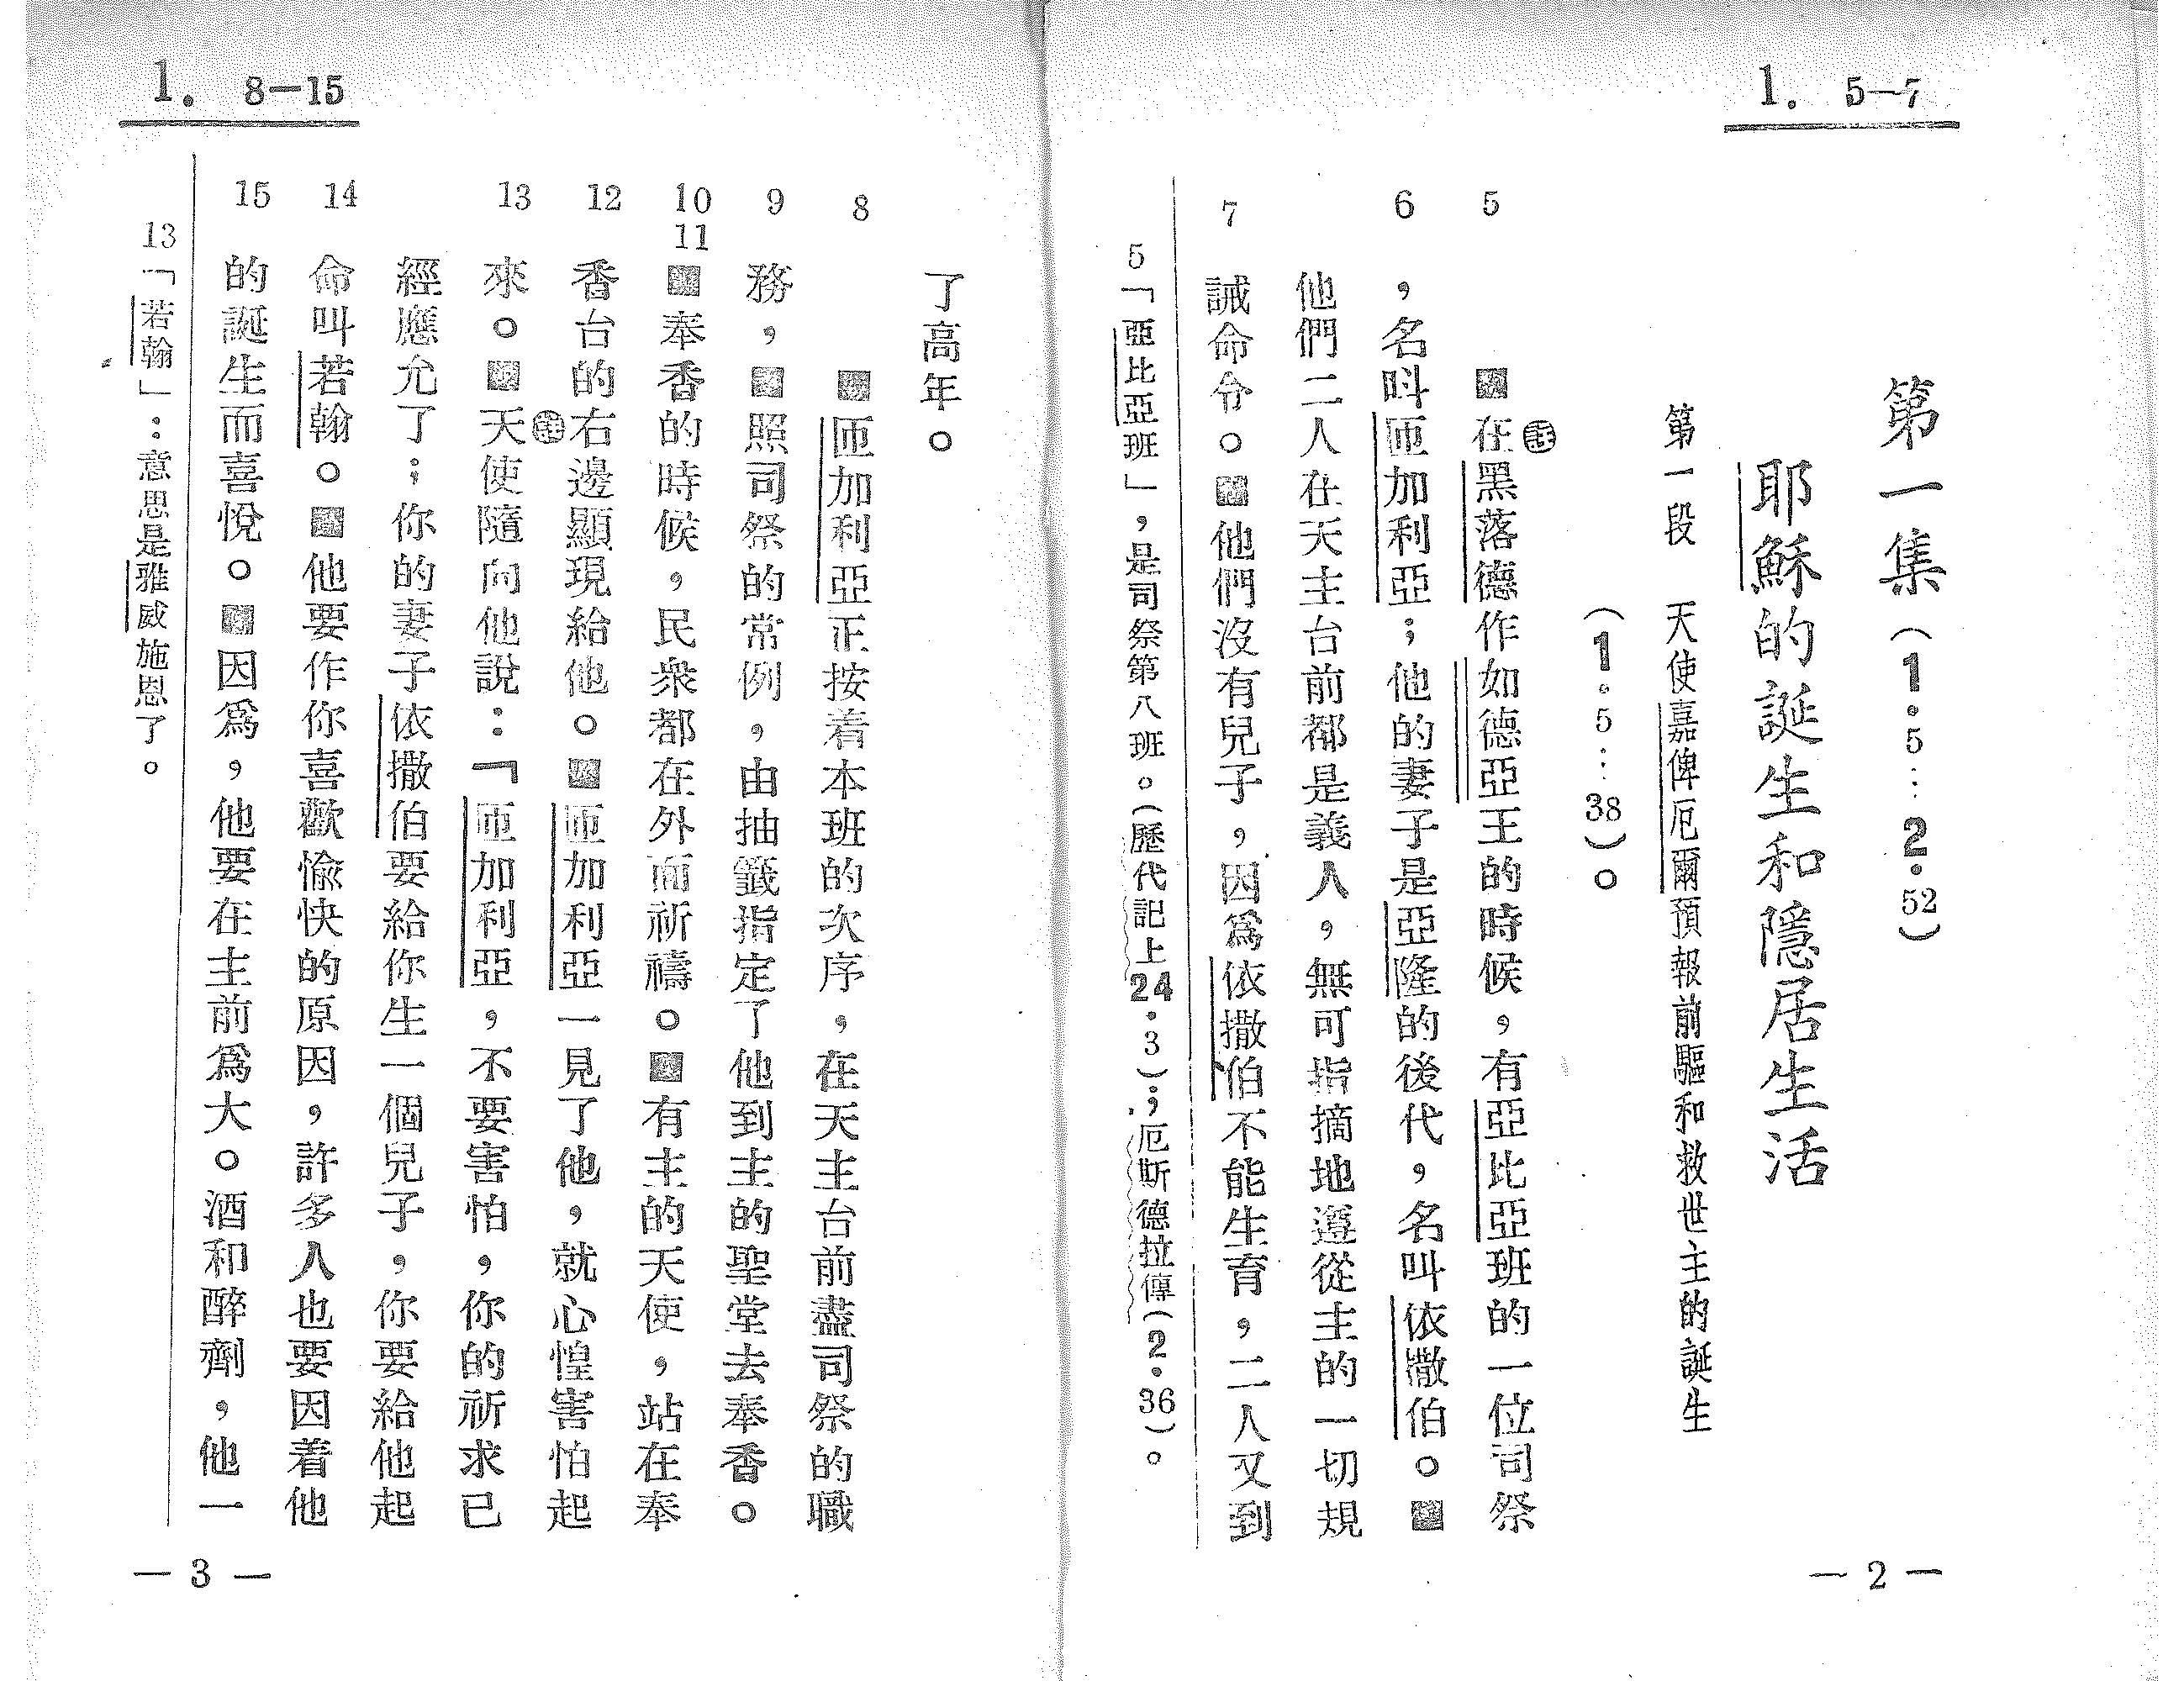 1. 5—7
第一集(1.5…2.52)
耶穌的誕生和隱居生活
第一段 天使嘉俾厄爾預報前驅和救世主的誕生
(1.5…38)。
5 在㊟黑落德作如德亞王的時候，有亞比亞班的一位司祭
6 ，名呌匝加利亞；他的妻子是亞隆的後代，名叫依撒伯。
他們二人在天主台前都是義人，無可指摘地遵從主的一切規
7 誡命令。他們沒有兒子，因爲依撒伯不能生育，二人又到
5「亞比亞班」，是司祭第八班。(歷代記上24.3)；厄斯德拉傳(2.36)。
— 2 —
1. 8—15
了高年。
8 匝加利亞正按着本班的次序，在天主台前盡司祭的職
9 務，照司祭的常例，由抽籤指定了他到主的聖堂去奉香。
10 11 奉香的時候，民衆都在外面祈禱。有主的天使，站在奉
12 香台的右邊顯現給他。匝加利亞一見了他，就心惶害怕起
13 來。天㊟使隨向他說：「匝加利亞，不要害怕，你的祈求已
經應允了；你的妻子依撒伯要給你生一個兒子，你要給他起
14 命叫若翰。他要作你喜歡愉快的原因，許多人也要因着他
15 的誕生而喜悅。因爲，他要在主前爲大。酒和醉劑，他一
13「若翰」：意思是雅威施恩了。
— 3 —